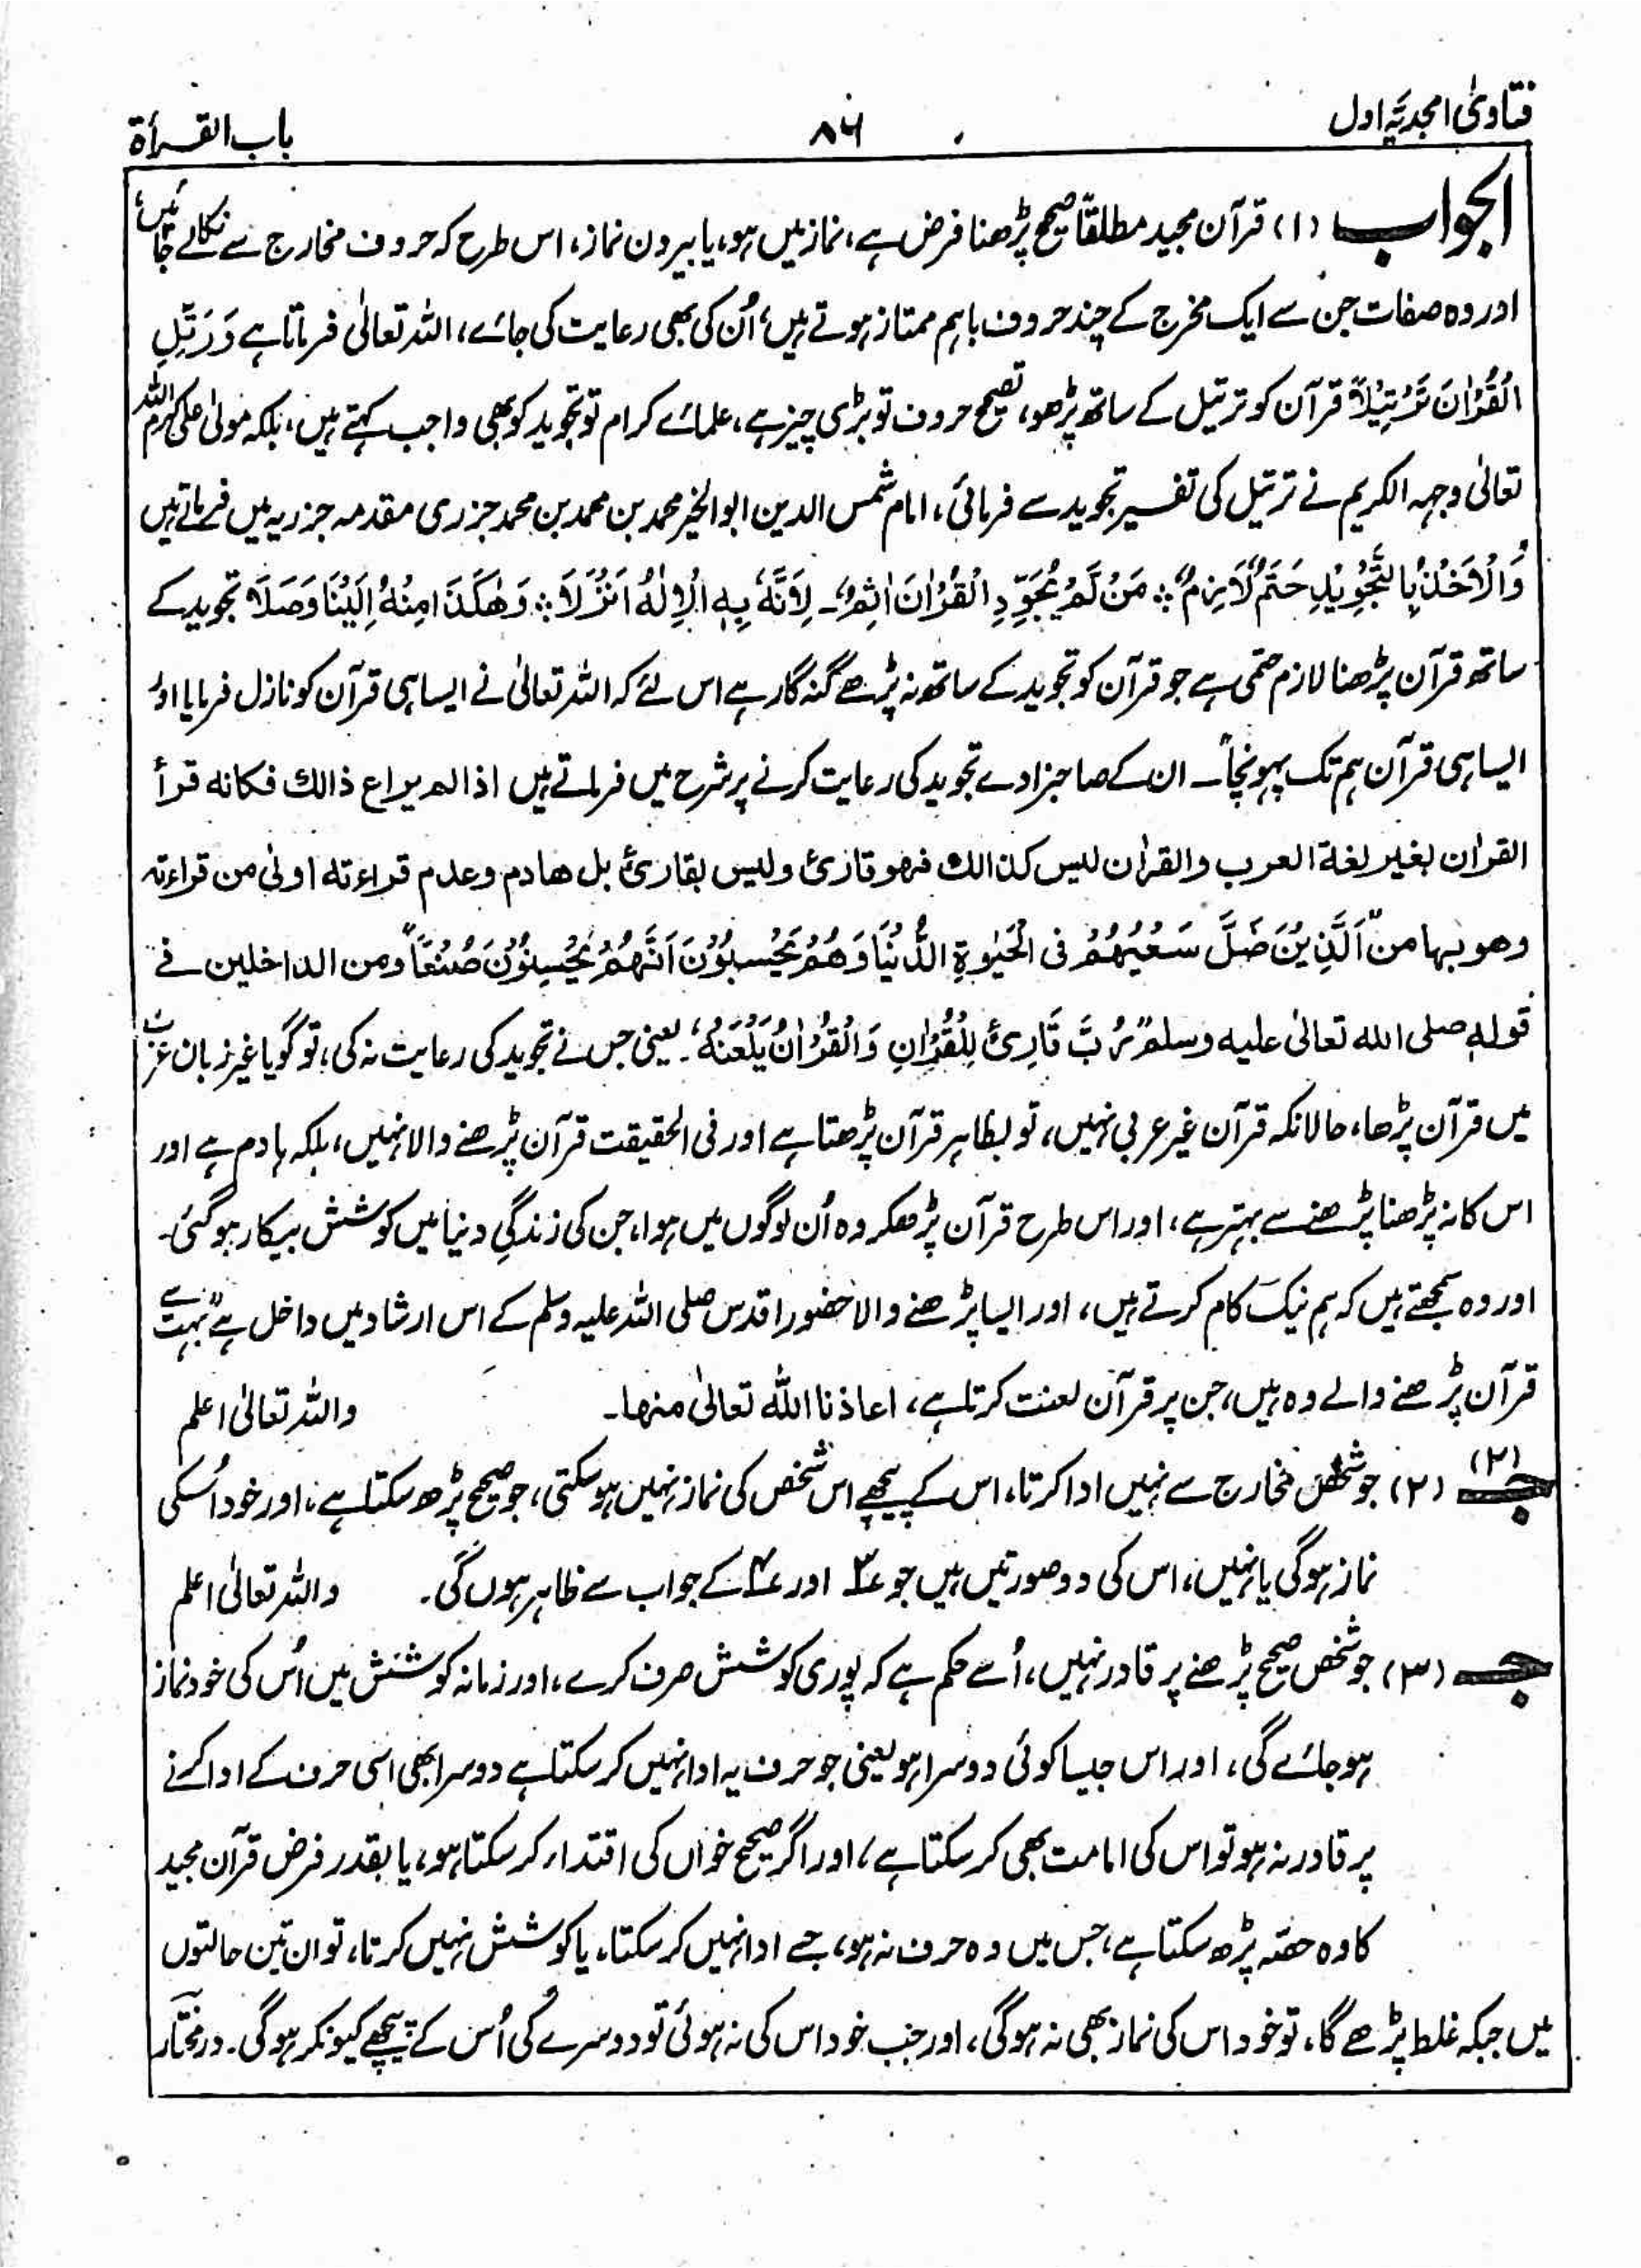 فتاویٰ امجدیہ اول
۸۶
باب القرأة
الجواب (۱) قرآن مجید مطلقاً صحیح پڑھنا فرض ہے، نماز میں ہو، یا بیرون نماز، اس طرح کہ حروف مخارج سے نکالے جائیں،
اور وہ صفات جن سے ایک مخرج کے چند حروف باہم ممتاز ہوتے ہیں، اُن کی بھی رعایت کی جائے، اللہ تعالیٰ فرماتا ہے وَرَتِّلِ
الْقُرْاٰنَ تَرْتِيْلًا قرآن کو ترتیل کے ساتھ پڑھو، تصحیح حروف تو بڑی چیز ہے، علمائے کرام تو تجوید کو بھی واجب کہتے ہیں، بلکہ مولیٰ علی کرم اللہ
تعالیٰ وجہہ الکریم نے ترتیل کی تفسیر تجوید سے فرمائی، امام شمس الدین ابوالخیر محمد بن محمد بن محمد جزری مقدمہ جزریہ میں فرماتے ہیں
وَالْاَخْذُ بِالتَّجْوِيْدِ حَتْمٌ لَازِمٌ ؞ مَنْ لَمْ يُجَوِّدِ الْقُرْاٰنَ اٰثِمٌ ۔ لِاَنَّهٗ بِهِ الْاِلٰهُ اَنْزَلَا ؞ وَهٰكَذَا مِنْهُ اِلَيْنَا وَصَلَا تجوید کے
ساتھ قرآن پڑھنا لازم حتمی ہے جو قرآن کو تجوید کے ساتھ نہ پڑھے گنہ گار ہے اس لئے کہ اللہ تعالیٰ نے ایسا ہی قرآن کو نازل فرمایا اور
ایسا ہی قرآن ہم تک پہونچا۔ ان کے صاحبزادے تجوید کی رعایت کرنے پر شرح میں فرماتے ہیں اذا لم یراع ذالك فکانه قرأ
القراٰن بغیر لغة العرب والقراٰن لیس کذالك فهو قارئ ولیس بقارئ بل هادم وعدم قراءته اولیٰ من قراءته
وهو بها من "اَلَّذِيْنَ ضَلَّ سَعْيُهُمْ فِى الْحَيٰوةِ الدُّنْيَا وَهُمْ يَحْسَبُوْنَ اَنَّهُمْ يُحْسِنُوْنَ صُنْعًا" ومن الداخلین فی
قوله صلى الله تعالىٰ عليه وسلم "رُبَّ قَارِئٍ لِلْقُرْاٰنِ وَالْقُرْاٰنُ يَلْعَنُهُ"۔ یعنی جس نے تجوید کی رعایت نہ کی، تو گویا غیر زبان عرب
میں قرآن پڑھا، حالانکہ قرآن غیر عربی نہیں، تو بظاہر قرآن پڑھتا ہے اور فی الحقیقت قرآن پڑھنے والا نہیں، بلکہ ہادم ہے اور
اس کا نہ پڑھنا پڑھنے سے بہتر ہے، اور اس طرح قرآن پڑھکر وہ اُن لوگوں میں ہوا، جن کی زندگیِ دنیا میں کوشش بیکار ہو گئی۔
اور وہ سمجھتے ہیں کہ ہم نیک کام کرتے ہیں، اور ایسا پڑھنے والا حضور اقدس صلی اللہ علیہ وسلم کے اس ارشاد میں داخل ہے "بہت سے
قرآن پڑھنے والے وہ ہیں، جن پر قرآن لعنت کرتا ہے، اعاذنا الله تعالىٰ منها۔ واللہ تعالیٰ اعلم
جـ (۲) (۲) جو شخص مخارج سے نہیں ادا کرتا، اس کے پیچھے اس شخص کی نماز نہیں ہوسکتی، جو صحیح پڑھ سکتا ہے، اور خود اُسکی
نماز ہوگی یا نہیں، اس کی دو صورتیں ہیں جو ۳ اور ۴ کے جواب سے ظاہر ہوں گی۔ واللہ تعالیٰ اعلم
جـ (۳) جو شخص صحیح پڑھنے پر قادر نہیں، اُسے حکم ہے کہ پوری کوشش صرف کرے، اور زمانہ کوشش میں اُس کی خود نماز
ہوجائے گی، اور اس جیسا کوئی دوسرا ہو یعنی جو حرف یہ ادا نہیں کرسکتا ہے دوسرا بھی اسی حرف کے ادا کرنے
پر قادر نہ ہو تو اس کی امامت بھی کرسکتا ہے، اور اگر صحیح خواں کی اقتداء کرسکتا ہو، یا بقدر فرض قرآن مجید
کا وہ حصہ پڑھ سکتا ہے، جس میں وہ حرف نہ ہو، جسے ادا نہیں کرسکتا، یا کوشش نہیں کرتا، تو ان تین حالتوں
میں جبکہ غلط پڑھے گا، تو خود اس کی نماز بھی نہ ہوگی، اور جب خود اس کی نہ ہوئی تو دوسرے کی اُس کے پیچھے کیونکر ہوگی۔ درمختار